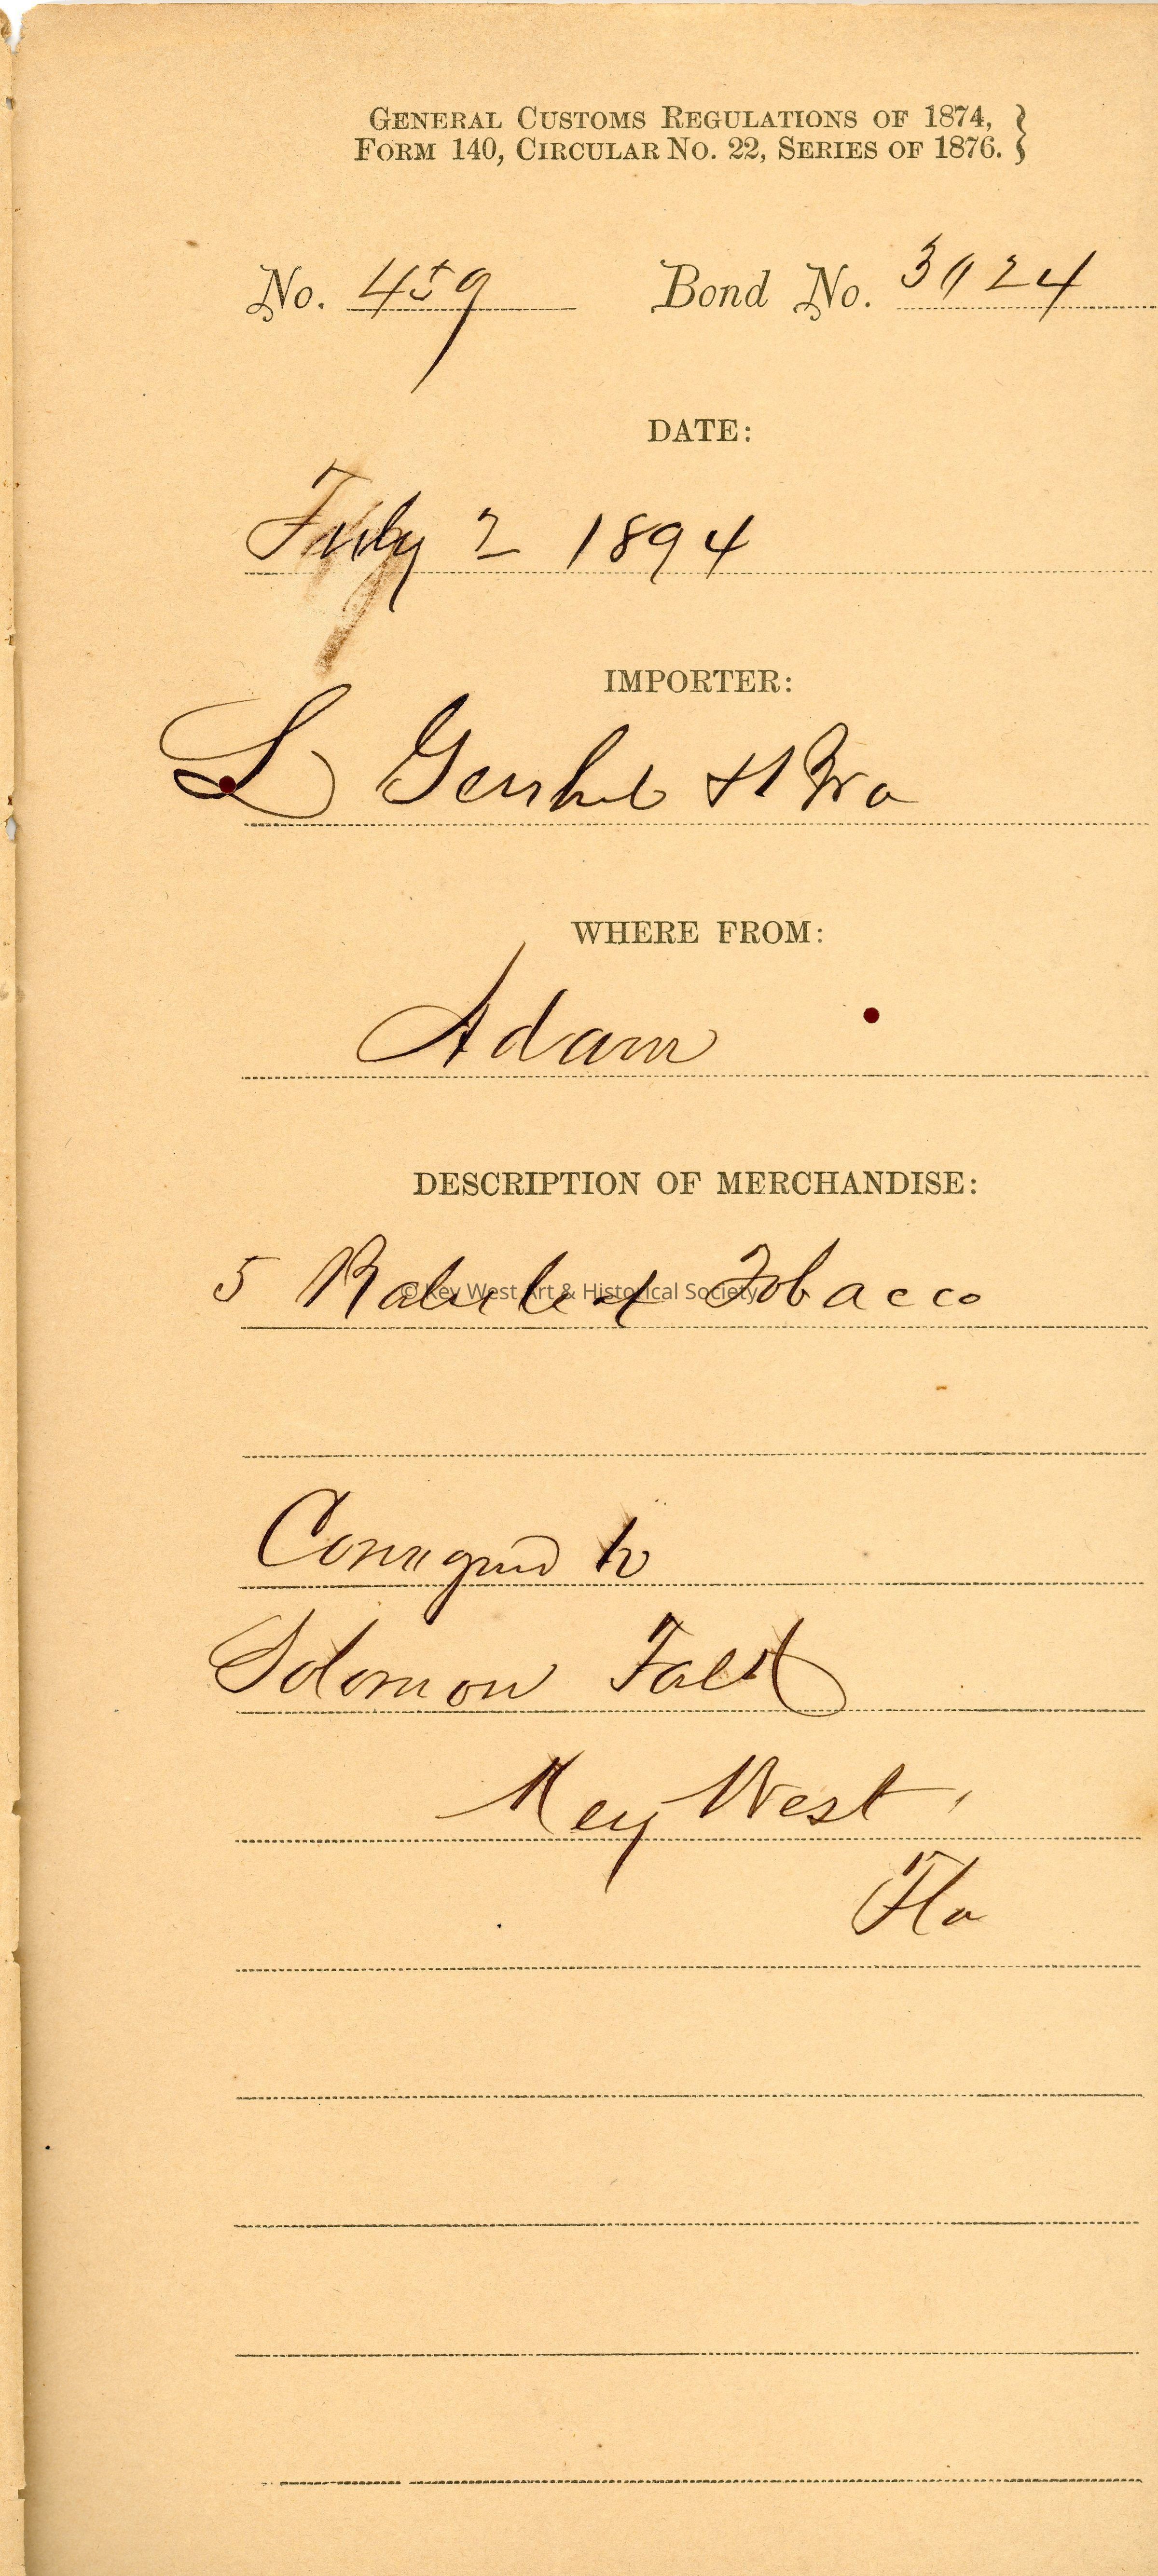 GENERAL CUSTOMS REGULATIONS OF 1874, }
FORM 140, CIRCULAR NO. 22, SERIES OF 1876. }
No. 459 Bond No. 3024
DATE:
July 2 1894
IMPORTER:
L & Bro
WHERE FROM:
Adam
DESCRIPTION OF MERCHANDISE:
5 Tobacco
© Key West Art & Historical Society
Consigned to
Solomon Falk
Key West,
Fla